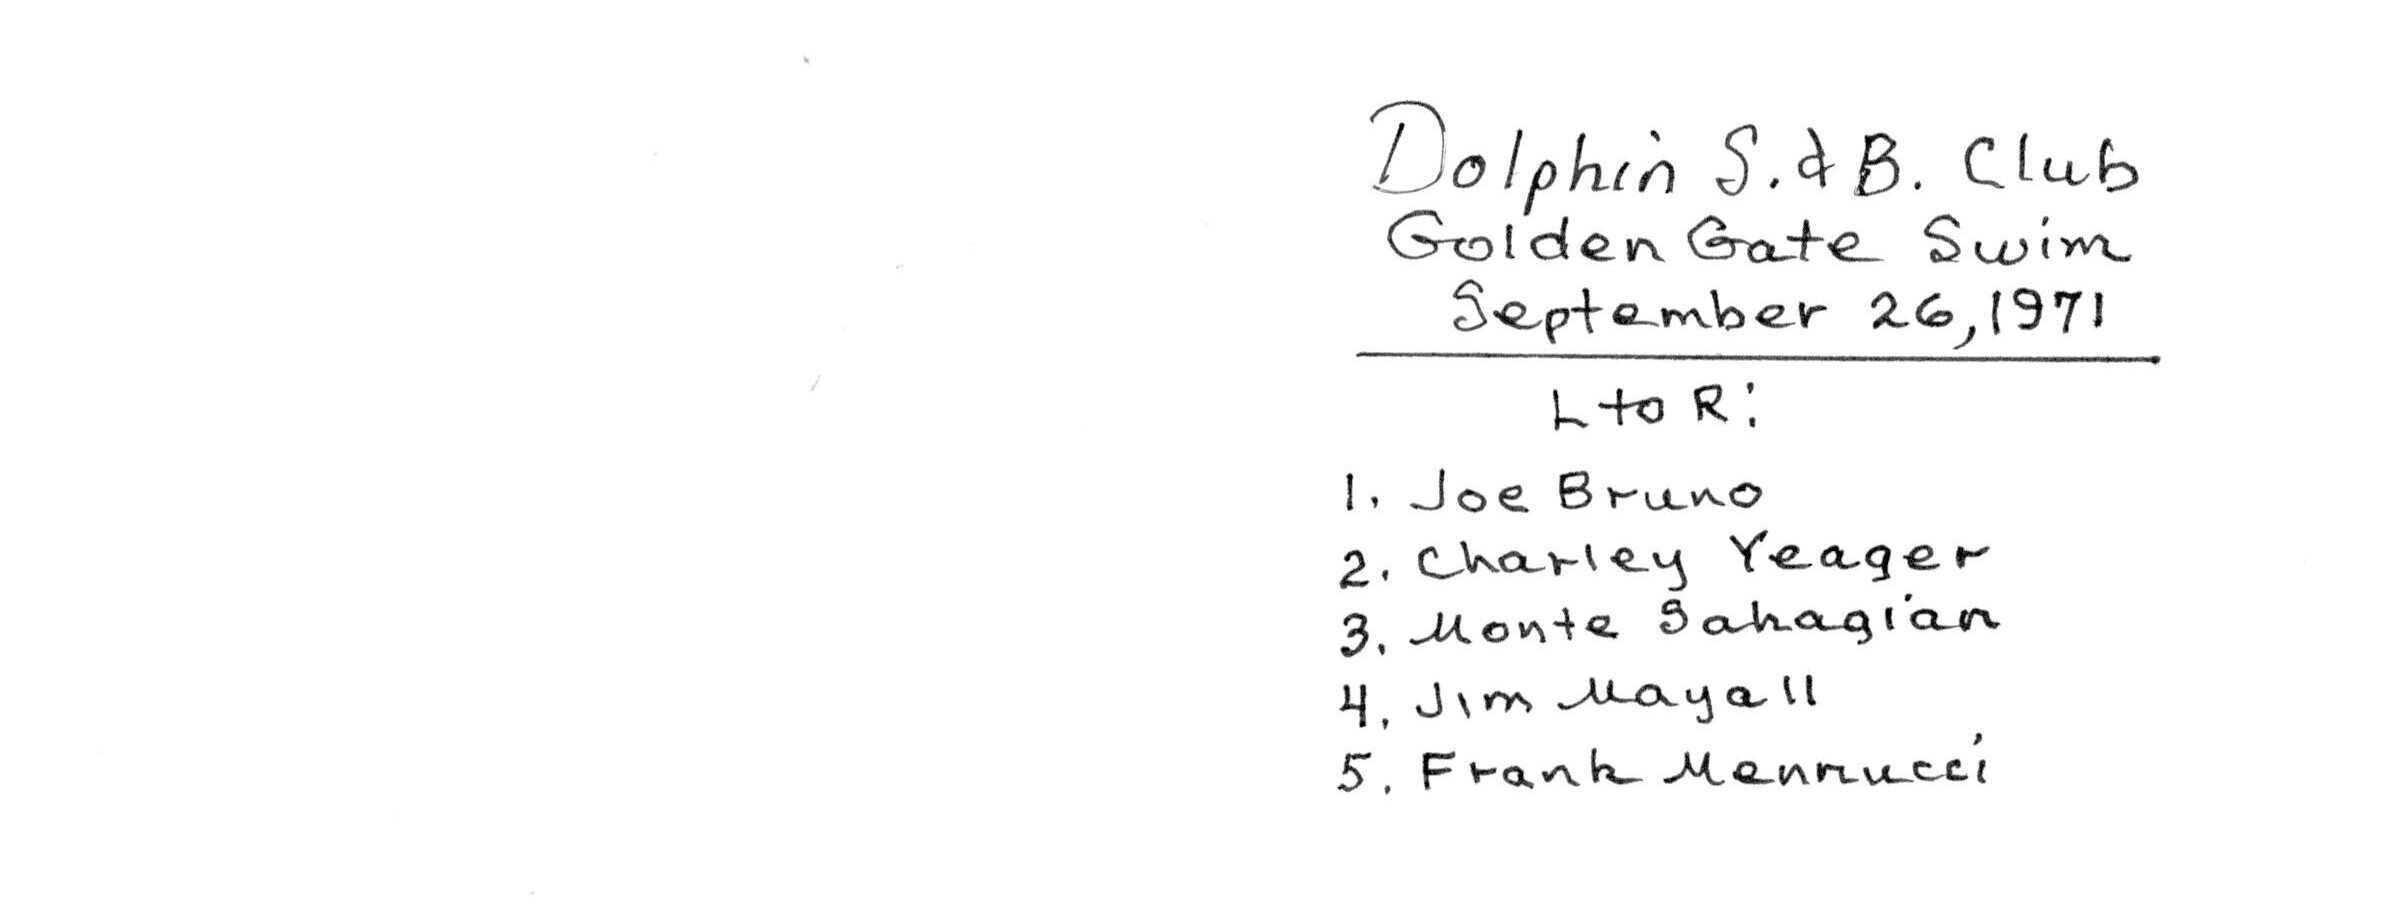 Dolphin S. & B. Club
Golden Gate Swim
September 26, 1971
L to R:
1. Joe Bruno
2. Charley Yeager
3. Monte Sahagian
4. Jim Mayall
5. Frank Mennucci